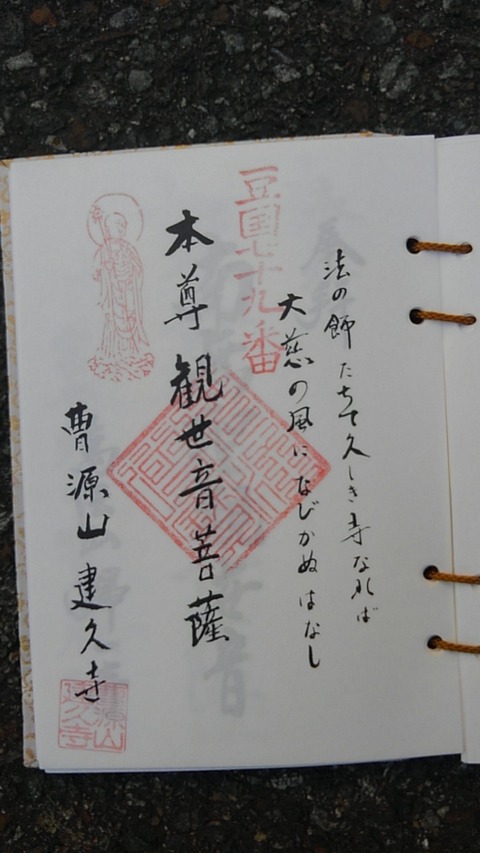 法の師たちて久しき寺なれば
大慈の風になびかぬはなし
豆国七十九番
本尊 観世音菩薩
曹源山 建久寺
曹源山
建久寺